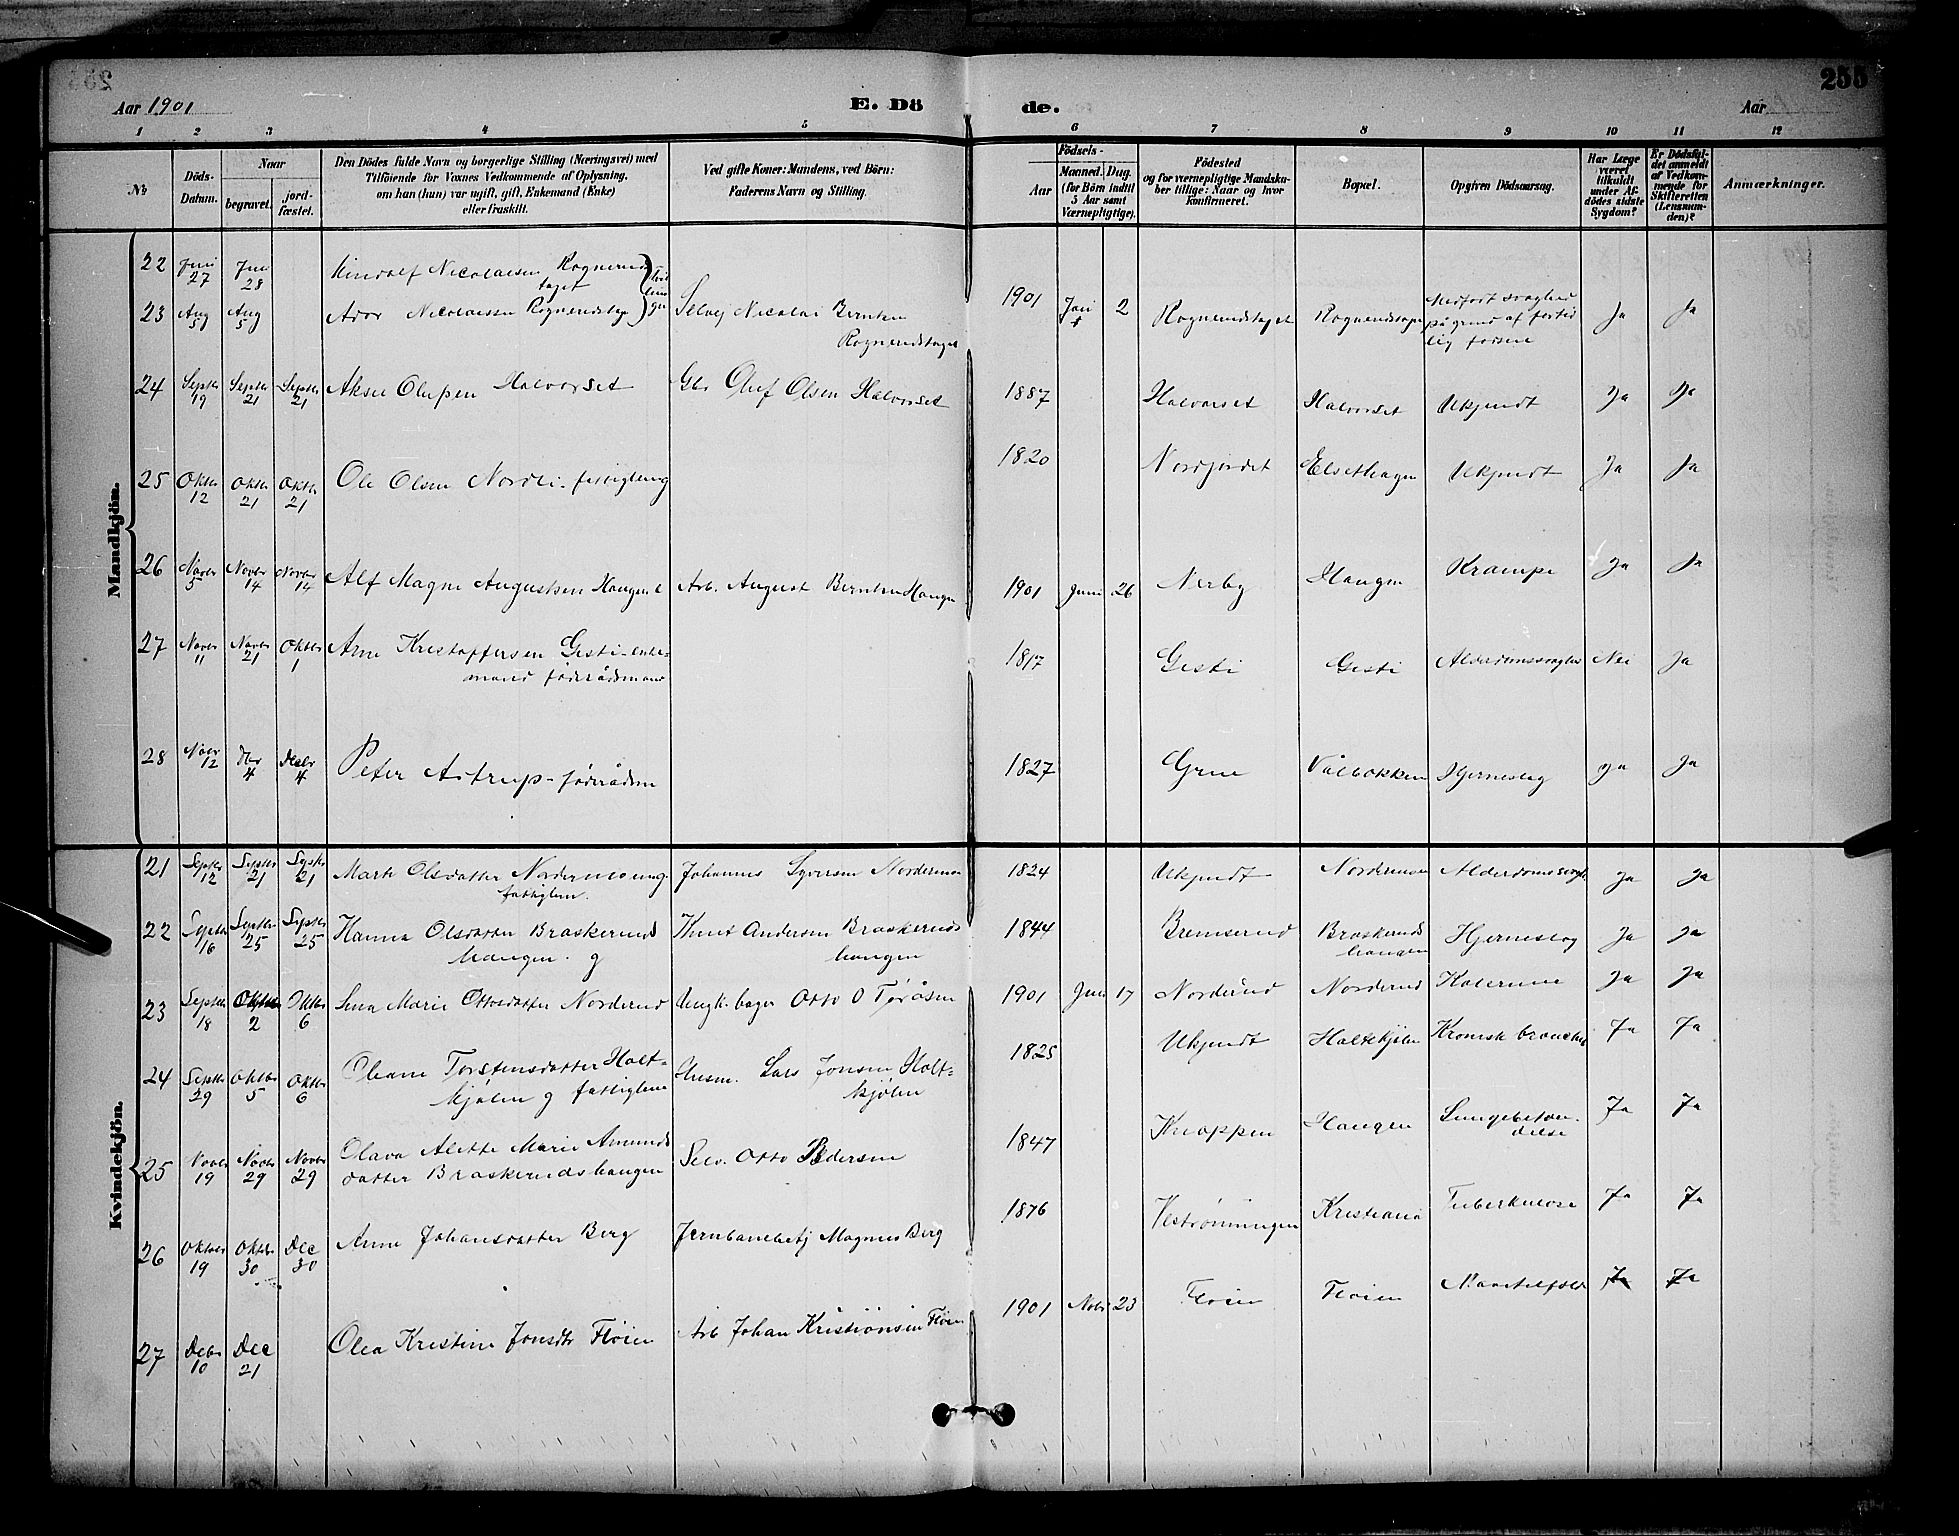 255
Aar 1901
E. Dö
de.
Aar
1 2 3 4 5 6 7 8 9 10 11 12
№
Döds-Datum.
Naar
begravet.
jord-fæstet.
Den Dödes fulde Navn og borgerlige Stilling (Næringsvei) med
Tilföiende for Voxnes Vedkommende af Oplysning,
om han (hun) var ugift, gift, Enkemand (Enke)
eller fraskilt.
Ved gifte Koner: Mandens, ved Börn:
Faderens Navn og Stilling.
Födsels-
Aar
Maaned. Dag.
(for Börn indtil
5 Aar samt
Værnepligtige).
Födested
og for værnepligtige Mandska-
ber tillige: Naar og hvor
konfirmeret.
Bopæl.
Opgiven Dödsaarsag.
Har Læge
været
tilkaldt
under Af-
dödes sidste
Sygdom?
Er Dödsfal-
det anmeldt
af Vedkom-
mende for
Skifteretten
(Lensman-
den)?
Anmærkninger.
Mandkjön.
22 Juni 27 Juni 28 Nicolaisen
23 Aug 5 Aug 5 Nicolaisen Rognerudstage Selvej Nicolai Berntsen 1901 Juni 2 Rognerudstaget Rognerudstage Ja Ja
Rognerudstaget
24 Septbr 19 Septbr 21 Septbr 21 Aksel Olufsen Halvorset Gbr Oluf Olsen Halvorset 1887 Halvorset Halvorset Ukjendt Ja Ja
25 Oktbr 12 Oktbr 21 Oktbr 21 Ole Olsen Nordli fattiglem g 1820 Nordjordet Elsethagen Ukjendt Ja Ja
26 Novbr 5 Novbr 14 Novbr 14 Alf Magne Augustsen Haugen Arb. August Berntsen Haugen 1901 Juni 26 Nerby Haugen Krampe Ja Ja
27 Novbr 11 Novbr 21 Oktbr 1 Arne Kristoffersen Gesti - enke-
mand föderådsmand 1817 Gesti Gesti Alderdomssvaghed Nei Ja
28 Novbr 12 Dbr 4 Decbr 4 Peter Astrup - föderådsm 1827 Grue Vålbakken Hjerneslag Ja Ja
Kvindekjön.
21 Septbr 12 Septbr 21 Septbr 21 Marte Olsdatter Nordermoen g. Johannes Syversen Nordermoen 1824 Ukjendt Nordermoen Alderdomssvagh Ja Ja
fattiglem.
22 Septbr 16 Septbr 25 Septbr 25 Hanna Olsdatter Braskeruds Knut Andersen Braskeruds 1844 Bremserud Braskeruds Hjerneslag Ja Ja
haugen. g haugen haugen
23 Septbr 18 Oktbr 2 Oktbr 6 Lina Marie Ottosdatter Norderud Ungk. bager Otto O Toråsen 1901 Juni 17 Norderud Norderud Kolerine Ja Ja
24 Septbr 29 Oktbr 5 Oktbr 6 Oleane Torstensdatter Holt- Husm. Lars Jonsen Holt- 1825 Ukjendt Holtekjölen Kronisk bronchit Ja Ja
kjölen g fattiglem kjölen
25 Novbr 19 Novbr 29 Novbr 29 Olava Alette Marie Amunds
datter Braskerudshaugen Selv. Otto Pedersen 1847 Knappen Haugen Lungebetæn-
delse Ja Ja
26 Oktober 19 Oktbr 30 Dec 30 Anne Johansdatter Berg Jernbanebetj Magnus Berg 1876 Kristiania Tuberkulose Ja Ja
27 Debr 10 Dec 21 Olea Kristine Jonsdtr Flöien Arb Johan Kristiansen Flöien 1901 Nobr 23 Flöien Flöien Ja Ja